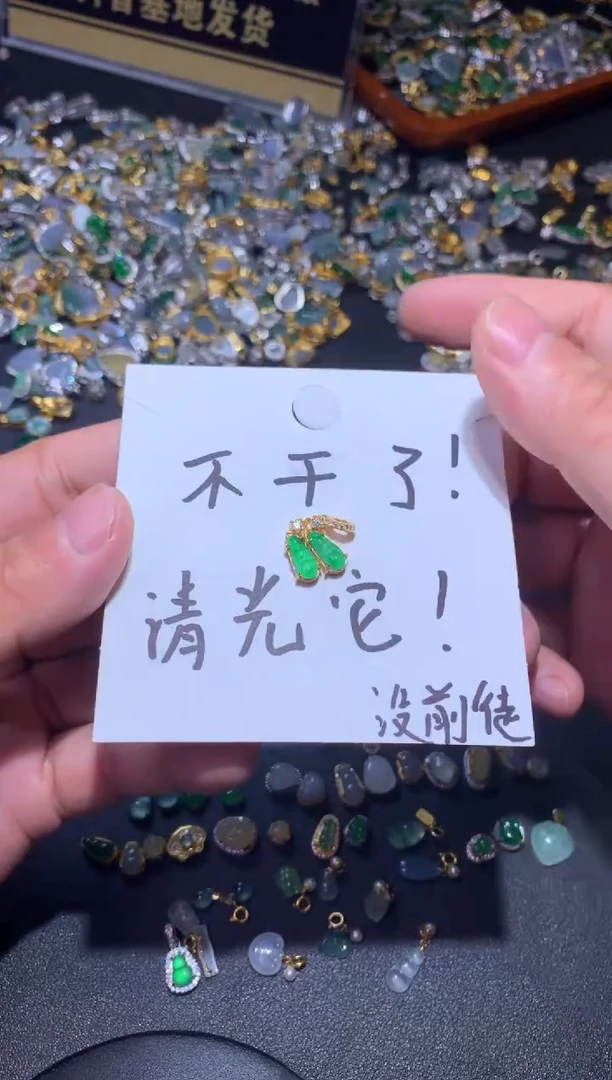 基地发货
不干了!
清光它!
没前徒